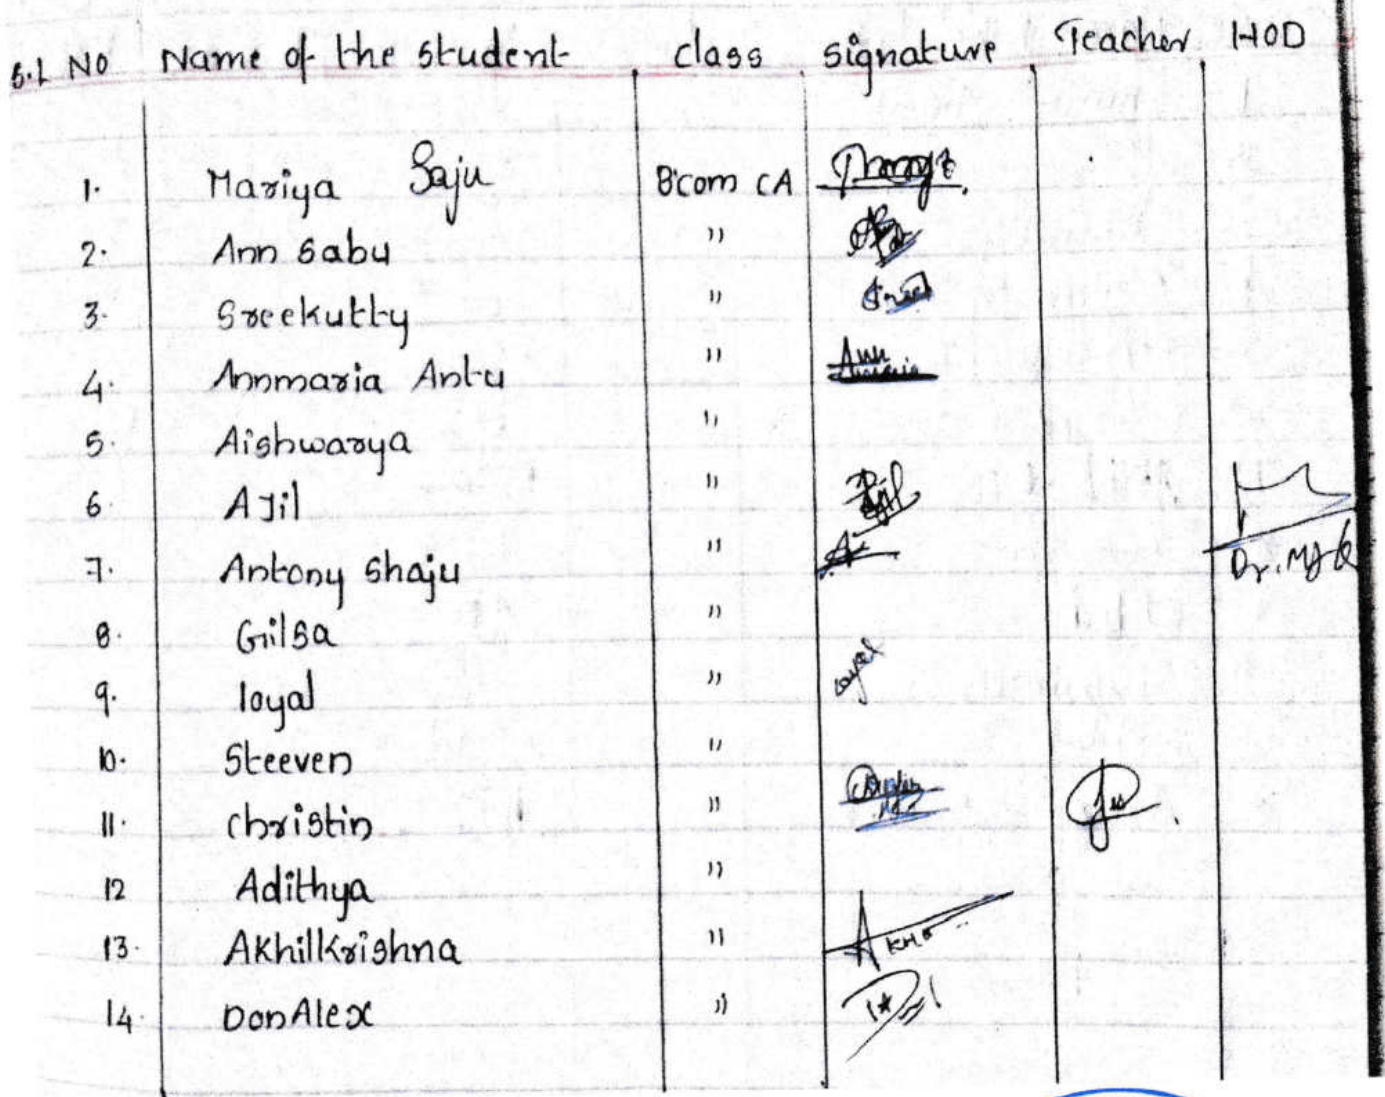 S.L NO Name of the student class signature Teacher HOD
1. Mariya Saju B'com CA
2. Ann Sabu "
3. Sreekutty " Sree
4. Annmaria Antu " Ann maria
5. Aishwarya "
6. AJil " Ajil
7. Antony Shaju " A
8. Gilsa "
9. loyal " Loyal
10. Steeven "
11. christin "
12 Adithya "
13. AKhilkrishna "
14. DonAlex "
Dr.